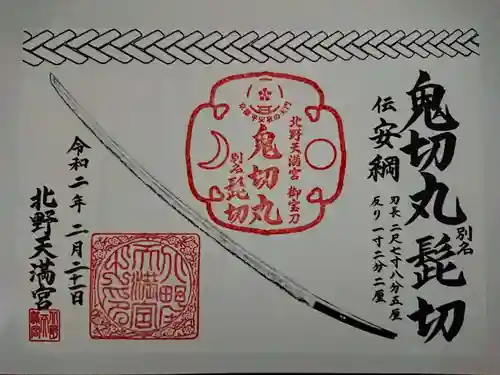 鬼切丸 別名 髭切
伝 安綱
刃長 二尺七寸八分五厘
反り 一寸二分二厘
北野天満宮 御宝刀
鬼切丸
別名 髭切
令和二年 二月二十一日
北野天満宮